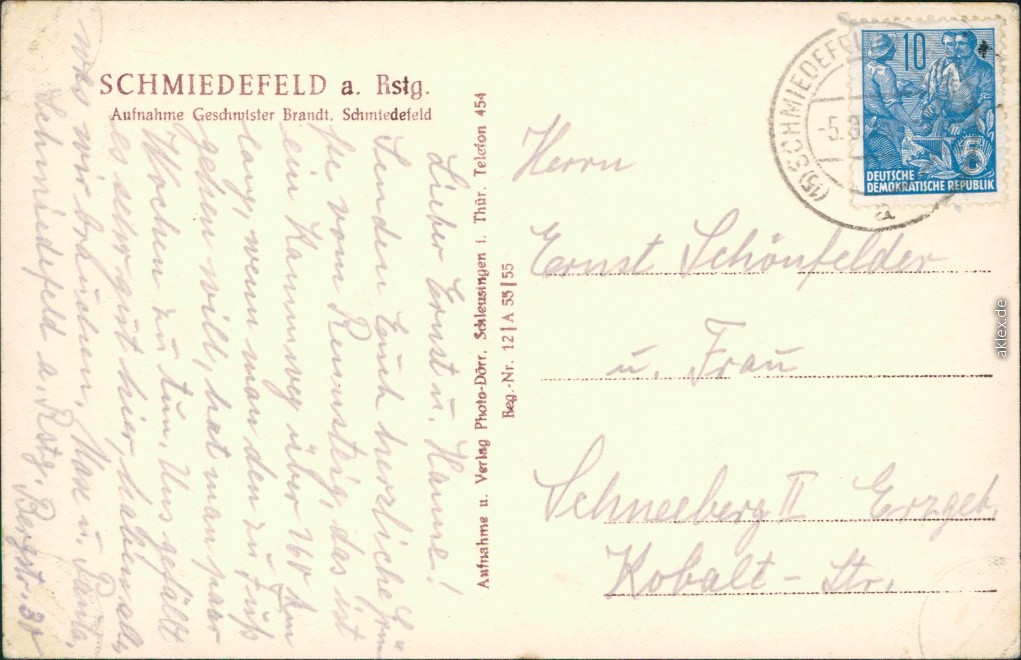 SCHMIEDEFELD a. Rstg.
Aufnahme Geschwister Brandt, Schmiedefeld
Lieber Ernst u. Hanne!
Senden Euch herzliche Grü-
ße vom Rennsteig, das ist
ein Kammweg über 160 km
lang, wenn man den zu Fuß
gehen will, hat man paar
Wochen zu tun. Uns gefällt
es sehr gut hier, haben alles,
was wir brauchen. Max u. Paula,
Schmiedefeld a. Rstg. Bergstr. 30
Aufnahme u. Verlag Photo-Dörr, Schleusingen i. Thür. Telefon 454
Reg.-Nr. 12 | A 55 | 55
10
5
DEUTSCHE
DEMOKRATISCHE REPUBLIK
(15) SCHMIEDEFEL
-5.8.
a
Herrn
Ernst Schönfelder
u. Frau
Schneeberg II Erzgeb.
Kobalt-Str.
aklex.de